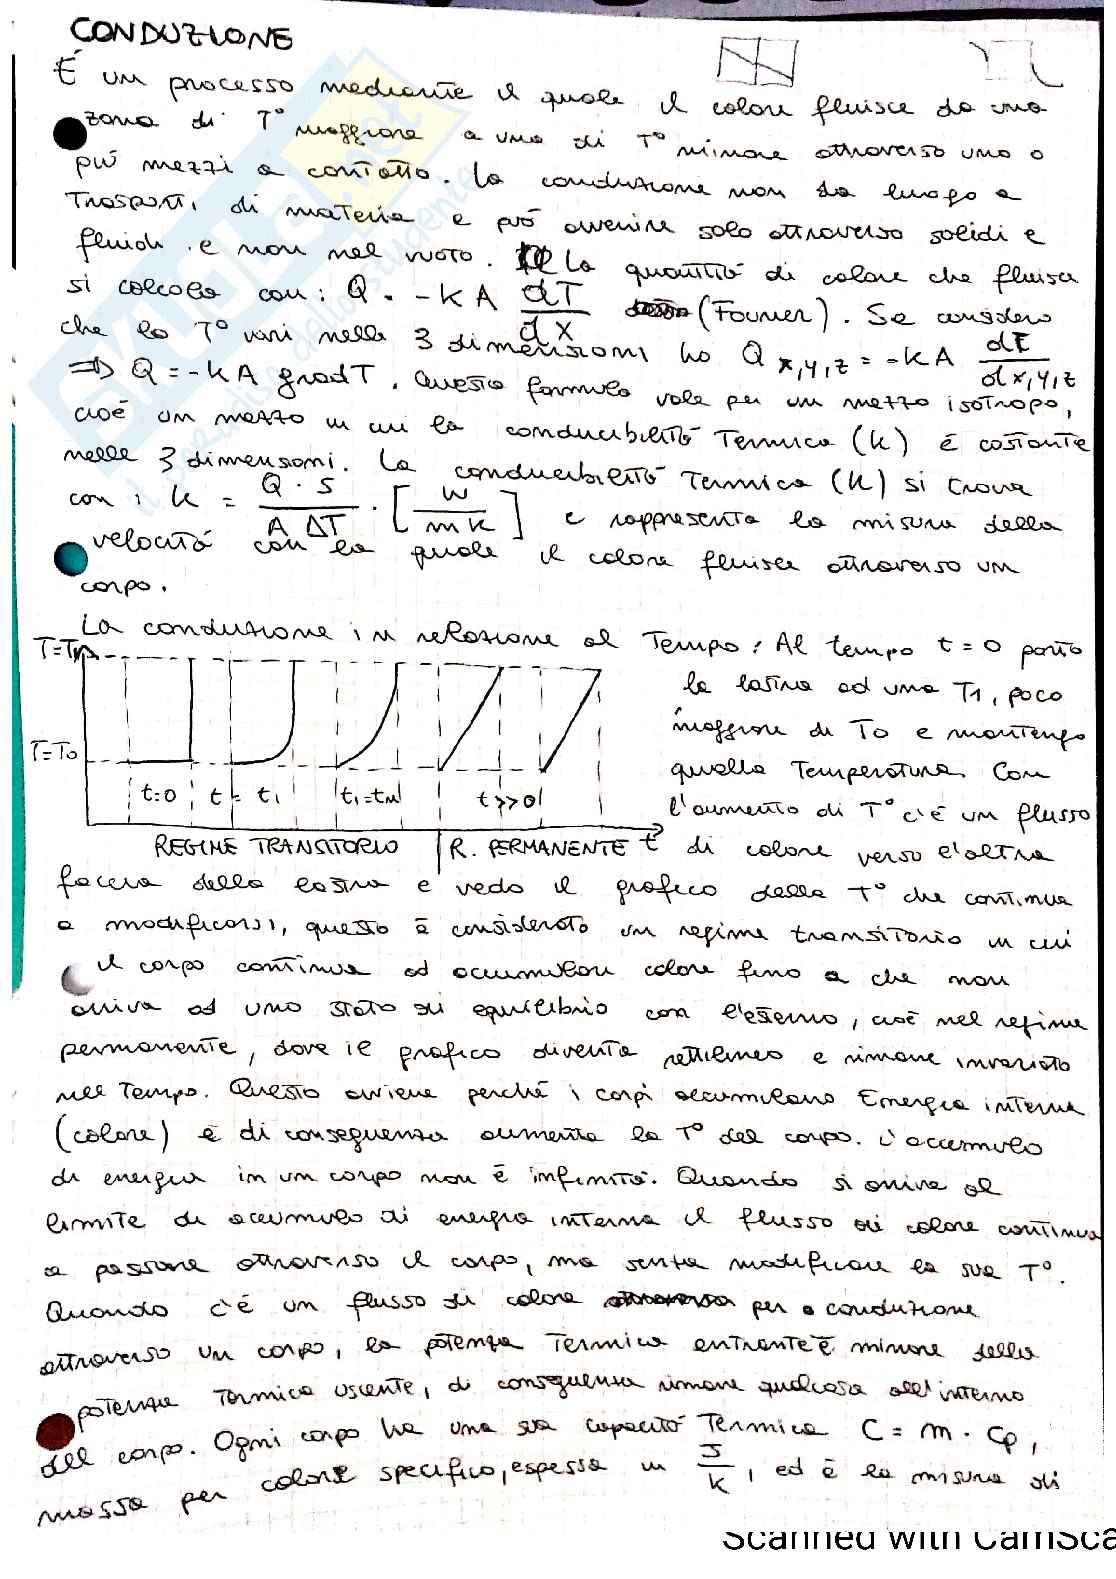 CONDUZIONE
È un processo mediante il quale il calore fluisce da una
zona di T° maggiore a una di T° minore attraverso uno o
più mezzi a contatto. La conduzione non da luogo a
trasporti di materia e può avvenire solo attraverso solidi e
fluidi e non nel vuoto. La quantità di calore che fluisce
si calcola con: Q = -kA dT/dx (Fourier). Se considero
che la T° vari nelle 3 dimensioni ho Q x,y,z = -kA dT/dx,y,z
=> Q = -kA gradT. Questa formula vale per un mezzo isotropo,
cioè un mezzo in cui la conducibilità termica (k) è costante
nelle 3 dimensioni. La conducibilità termica (k) si trova
con: k = Q·s/AΔT · [W/mk] e rappresenta la misura della
velocità con la quale il calore fluisce attraverso un
corpo.
La conduzione in relazione al tempo: Al tempo t=0 porto
la lastra ad una T1, poco
maggiore di T0 e mantengo
quella temperatura. Con
l'aumento di T° c'è un flusso
di calore verso l'altra
T=T1
T=T0
t=0
t = t1
t1=tn
t>>0
t
REGIME TRANSITORIO
R. PERMANENTE
faccia della lastra e vedo il grafico della T° che continua
a modificarsi, questo è considerato un regime transitorio in cui
il corpo continua ad accumulare calore fino a che non
arriva ad uno stato di equilibrio con l'esterno, cioè nel regime
permanente, dove il grafico diventa rettilineo e rimane invariato
nel tempo. Questo avviene perché i corpi accumulano Energia interna
(calore) e di conseguenza aumenta la T° del corpo. L'accumulo
di energia in un corpo non è infinito. Quando si arriva al
limite di accumulo di energia interna il flusso di calore continua
a passare attraverso il corpo, ma senza modificare la sua T°.
Quando c'è un flusso di calore per conduzione
attraverso un corpo, la potenza termica entrante è minore della
potenza termica uscente, di conseguenza rimane qualcosa all'interno
del corpo. Ogni corpo ha una sua capacità termica C = m · cp,
massa per calore specifico, espressa in J/k, ed è la misura di
Scanned with CamSca
SKUOLA.net
il portale dello studente